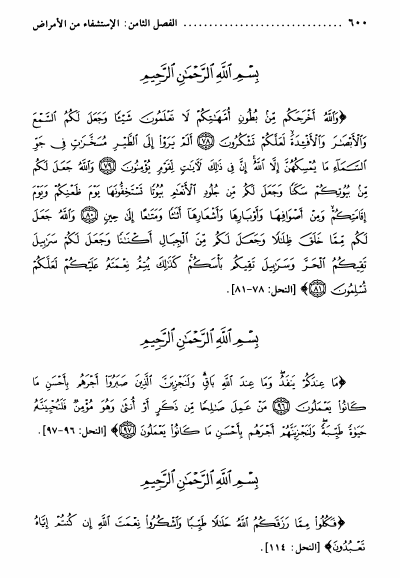 ٦٠٠ ........................ الفصل الثامن: الإستشفاء من الأمراض
بِسْمِ اللَّهِ الرَّحْمَٰنِ الرَّحِيمِ
﴿وَاللَّهُ أَخْرَجَكُم مِّنْ بُطُونِ أُمَّهَاتِكُمْ لَا تَعْلَمُونَ شَيْئًا وَجَعَلَ لَكُمُ السَّمْعَ
وَالْأَبْصَارَ وَالْأَفْئِدَةَ لَعَلَّكُمْ تَشْكُرُونَ ﴿٧٨﴾ أَلَمْ يَرَوْا إِلَى الطَّيْرِ مُسَخَّرَاتٍ فِي جَوِّ
السَّمَاءِ مَا يُمْسِكُهُنَّ إِلَّا اللَّهُ إِنَّ فِي ذَٰلِكَ لَآيَاتٍ لِّقَوْمٍ يُؤْمِنُونَ ﴿٧٩﴾ وَاللَّهُ جَعَلَ لَكُم
مِّنْ بُيُوتِكُمْ سَكَنًا وَجَعَلَ لَكُم مِّن جُلُودِ الْأَنْعَامِ بُيُوتًا تَسْتَخِفُّونَهَا يَوْمَ ظَعْنِكُمْ وَيَوْمَ
إِقَامَتِكُمْ وَمِنْ أَصْوَافِهَا وَأَوْبَارِهَا وَأَشْعَارِهَا أَثَاثًا وَمَتَاعًا إِلَىٰ حِينٍ ﴿٨٠﴾ وَاللَّهُ جَعَلَ
لَكُم مِّمَّا خَلَقَ ظِلَالًا وَجَعَلَ لَكُم مِّنَ الْجِبَالِ أَكْنَانًا وَجَعَلَ لَكُمْ سَرَابِيلَ
تَقِيكُمُ الْحَرَّ وَسَرَابِيلَ تَقِيكُم بَأْسَكُمْ كَذَٰلِكَ يُتِمُّ نِعْمَتَهُ عَلَيْكُمْ لَعَلَّكُمْ
تُسْلِمُونَ ﴿٨١﴾﴾ [النحل: ٧٨-٨١].
بِسْمِ اللَّهِ الرَّحْمَٰنِ الرَّحِيمِ
﴿مَا عِندَكُمْ يَنفَدُ وَمَا عِندَ اللَّهِ بَاقٍ وَلَنَجْزِيَنَّ الَّذِينَ صَبَرُوا أَجْرَهُم بِأَحْسَنِ مَا
كَانُوا يَعْمَلُونَ ﴿٩٦﴾ مَنْ عَمِلَ صَالِحًا مِّن ذَكَرٍ أَوْ أُنثَىٰ وَهُوَ مُؤْمِنٌ فَلَنُحْيِيَنَّهُ
حَيَاةً طَيِّبَةً وَلَنَجْزِيَنَّهُمْ أَجْرَهُم بِأَحْسَنِ مَا كَانُوا يَعْمَلُونَ ﴿٩٧﴾﴾ [النحل: ٩٦-٩٧].
بِسْمِ اللَّهِ الرَّحْمَٰنِ الرَّحِيمِ
﴿فَكُلُوا مِمَّا رَزَقَكُمُ اللَّهُ حَلَالًا طَيِّبًا وَاشْكُرُوا نِعْمَتَ اللَّهِ إِن كُنتُمْ إِيَّاهُ
تَعْبُدُونَ﴾ [النحل: ١١٤].